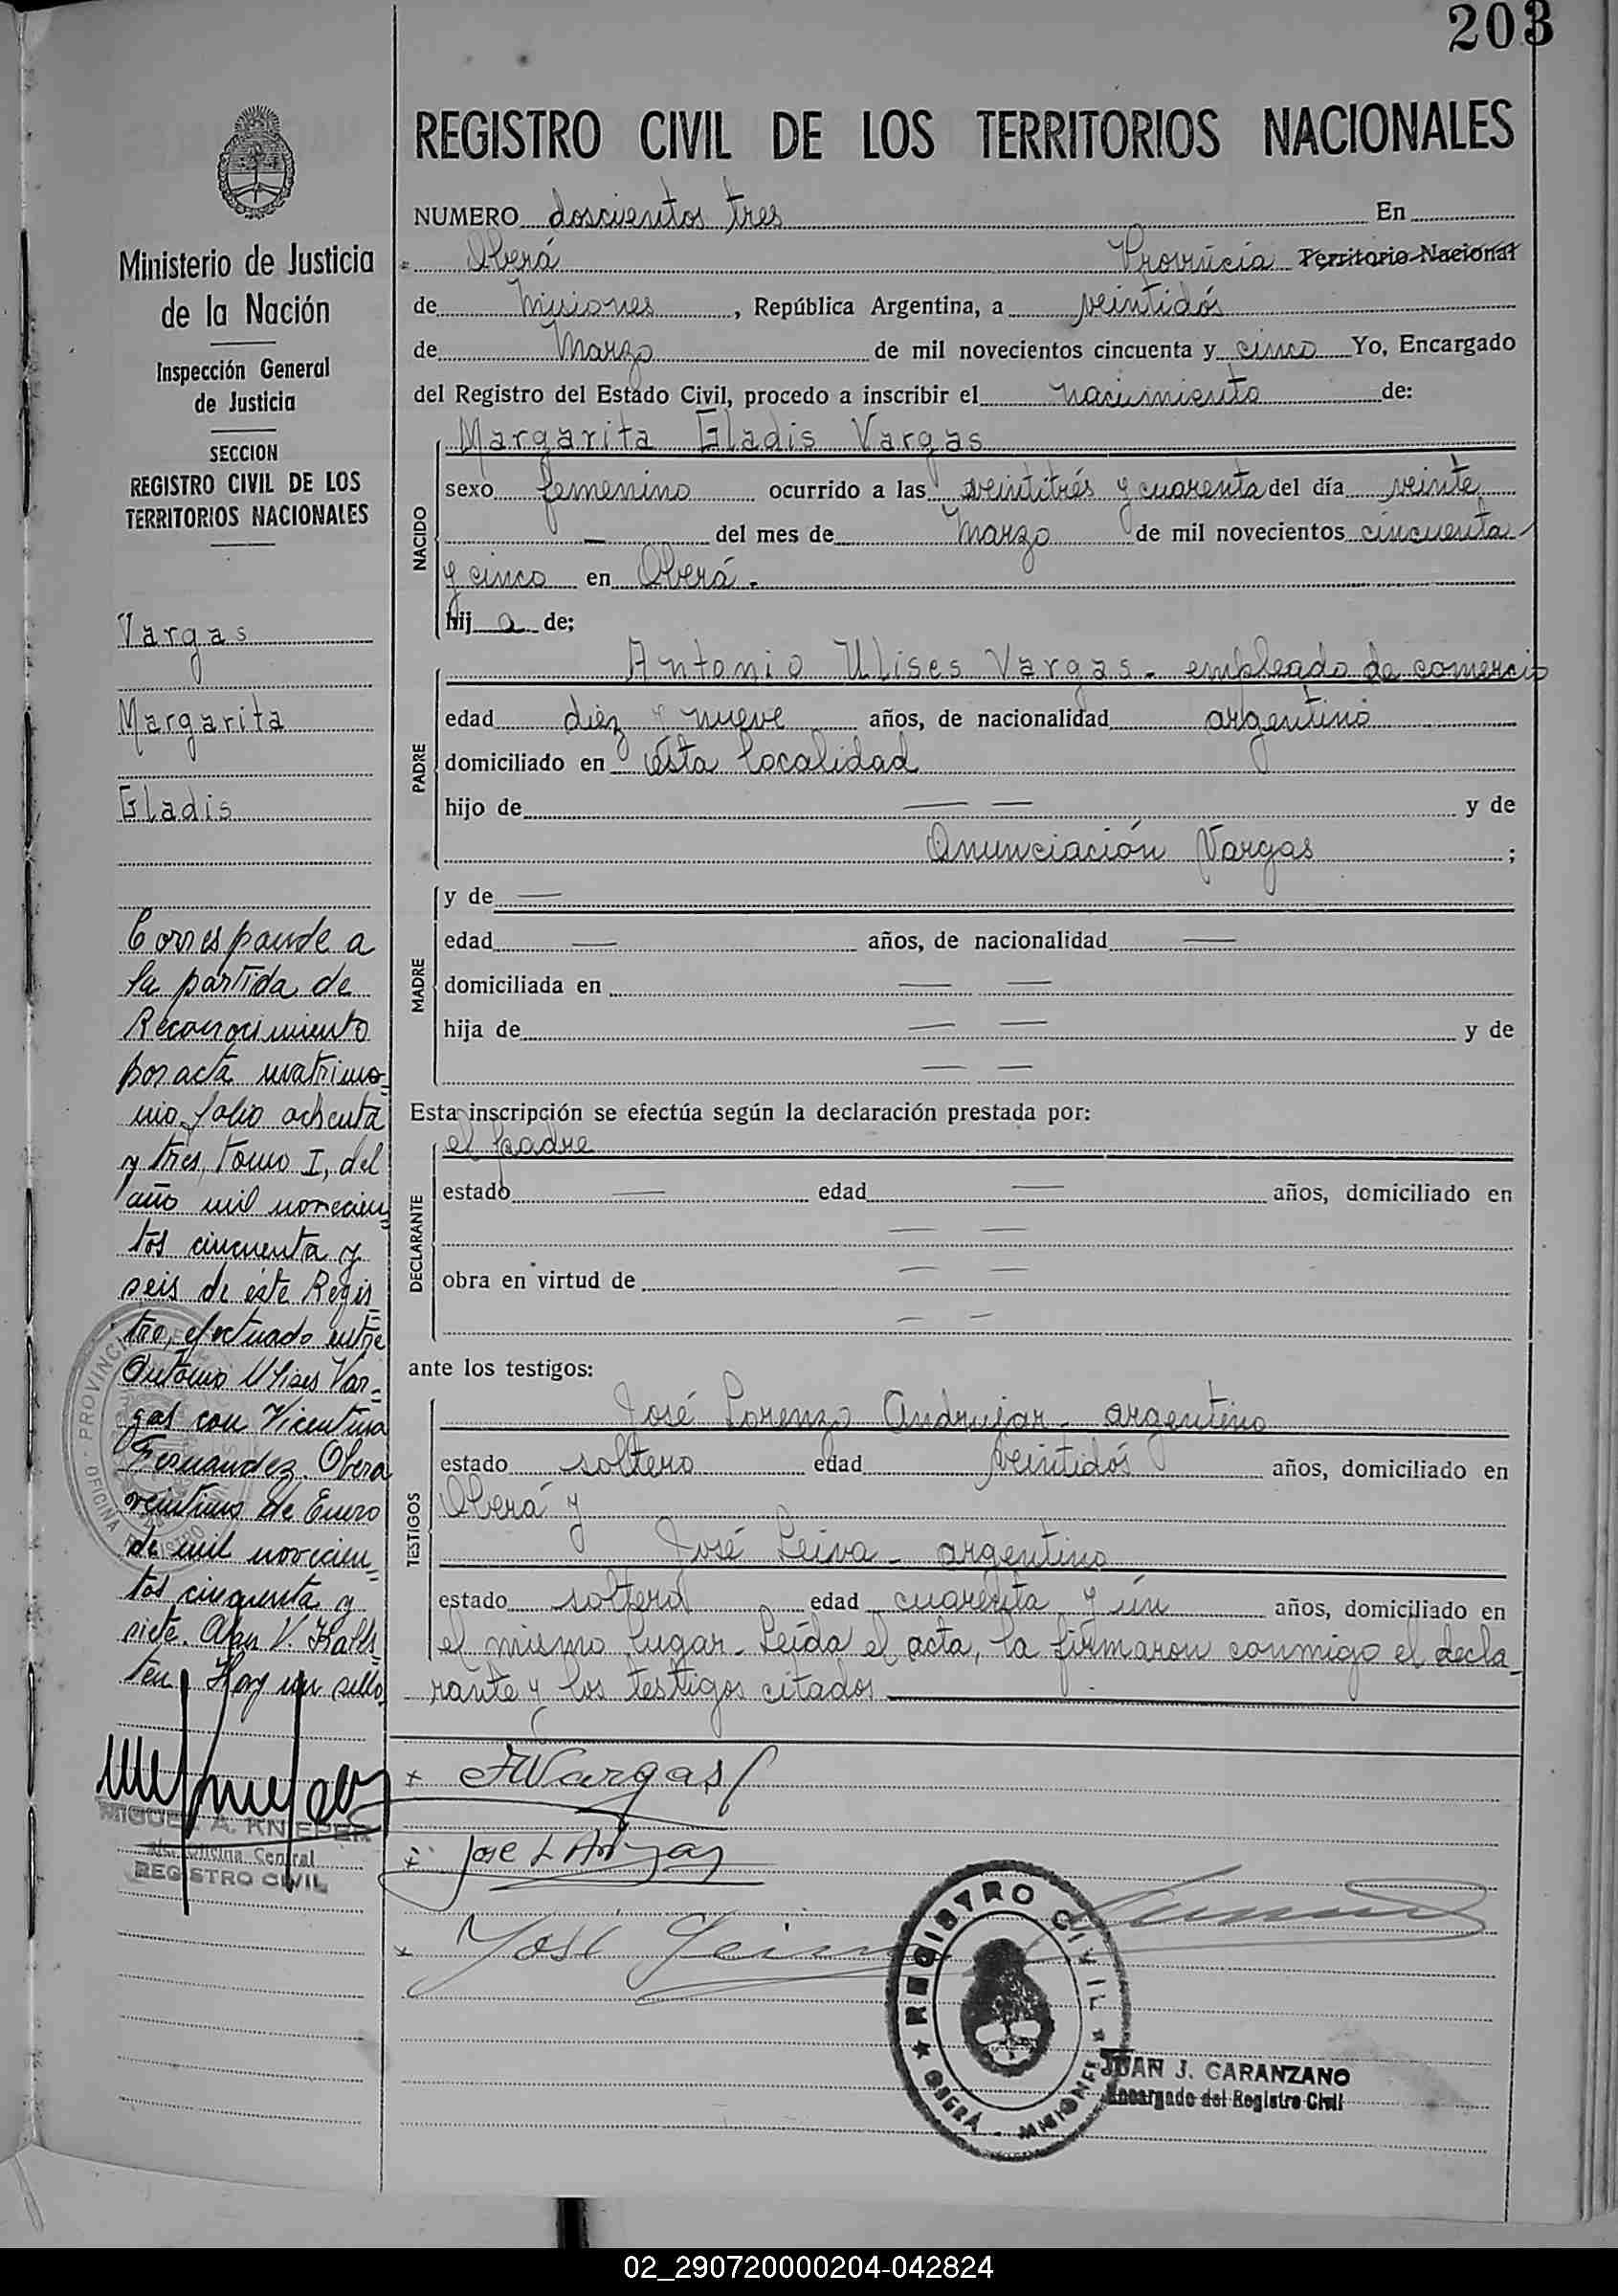 203
REGISTRO CIVIL DE LOS TERRITORIOS NACIONALES
NUMERO doscientos tres En
Oberá Provincia Territorio Nacional
de Misiones, República Argentina, a veintidós
de Marzo de mil novecientos cincuenta y cinco Yo, Encargado
del Registro del Estado Civil, procedo a inscribir el nacimiento de:
NACIDO
Margarita Gladis Vargas
sexo femenino ocurrido a las veintitrés y cuarenta del día veinte
— del mes de Marzo de mil novecientos cincuenta
y cinco en Oberá.
hij a de;
PADRE
Antonio Ulises Vargas - empleado de comercio
edad diez y nueve años, de nacionalidad argentino
domiciliado en esta localidad
hijo de — — y de
Anunciación Vargas ;
MADRE
y de —
edad — años, de nacionalidad —
domiciliada en — —
hija de — — y de
— —
Esta inscripción se efectúa según la declaración prestada por:
DECLARANTE
el padre
estado — edad — años, domiciliado en
— —
obra en virtud de — —
— —
ante los testigos:
TESTIGOS
José Lorenzo Andrujar - argentino
estado soltero edad veintidós años, domiciliado en
Oberá y
José Leiva - argentino
estado soltero edad cuarenta y ún años, domiciliado en
el mismo lugar - Leída el acta, la firmaron conmigo el decla-
rante y los testigos citados
AVargas
José L
José Leiva
REGISTRO CIVIL
OBERÁ - MISIONES
JUAN J. CARANZANO
Encargado del Registro Civil
Ministerio de Justicia
de la Nación
Inspección General
de Justicia
SECCION
REGISTRO CIVIL DE LOS
TERRITORIOS NACIONALES
Vargas
Margarita
Gladis
Corresponde a
la partida de
Reconocimiento
por acta matrimo=
nio, folio ochenta
y tres, tomo I, del
año mil novecien=
tos cincuenta y
seis de éste Regis=
tro, efectuado entre
Antonio Ulises Var=
gas con Vicentina
Fernandez. Obera
veintiuno de Enero
de mil novecien=
tos cincuenta y
siete. V.
Hay un sello.
MIGUEL A. KNEPER
Oficina Central
REGISTRO CIVIL
02_290720000204-042824